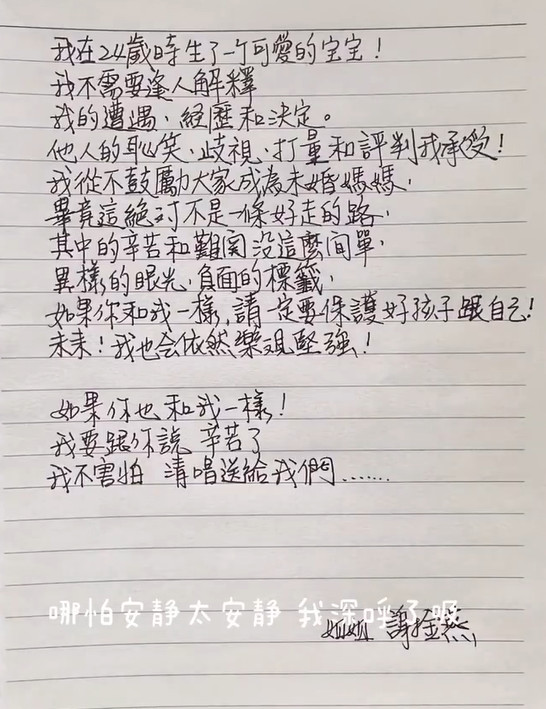 我在24歲時生了一个可愛的宝宝!
我不需要逢人解釋
我的遭遇、經歷和決定。
他人的恥笑、歧視、打量和評判我承受!
我從不鼓勵大家成為未婚媽媽,
畢竟這絕对不是一條好走的路,
其中的辛苦和難関没這麼间單,
異樣的眼光,負面的標籤,
如果你和我一樣,請一定要保護好孩子跟自己!
未来!我也会依然樂观堅強!
如果你也和我一樣!
我要跟你說 辛苦了
我不害怕 請唱送給我們.......
哪怕安静太安静 我深呼了吸
姐姐 謝金燕